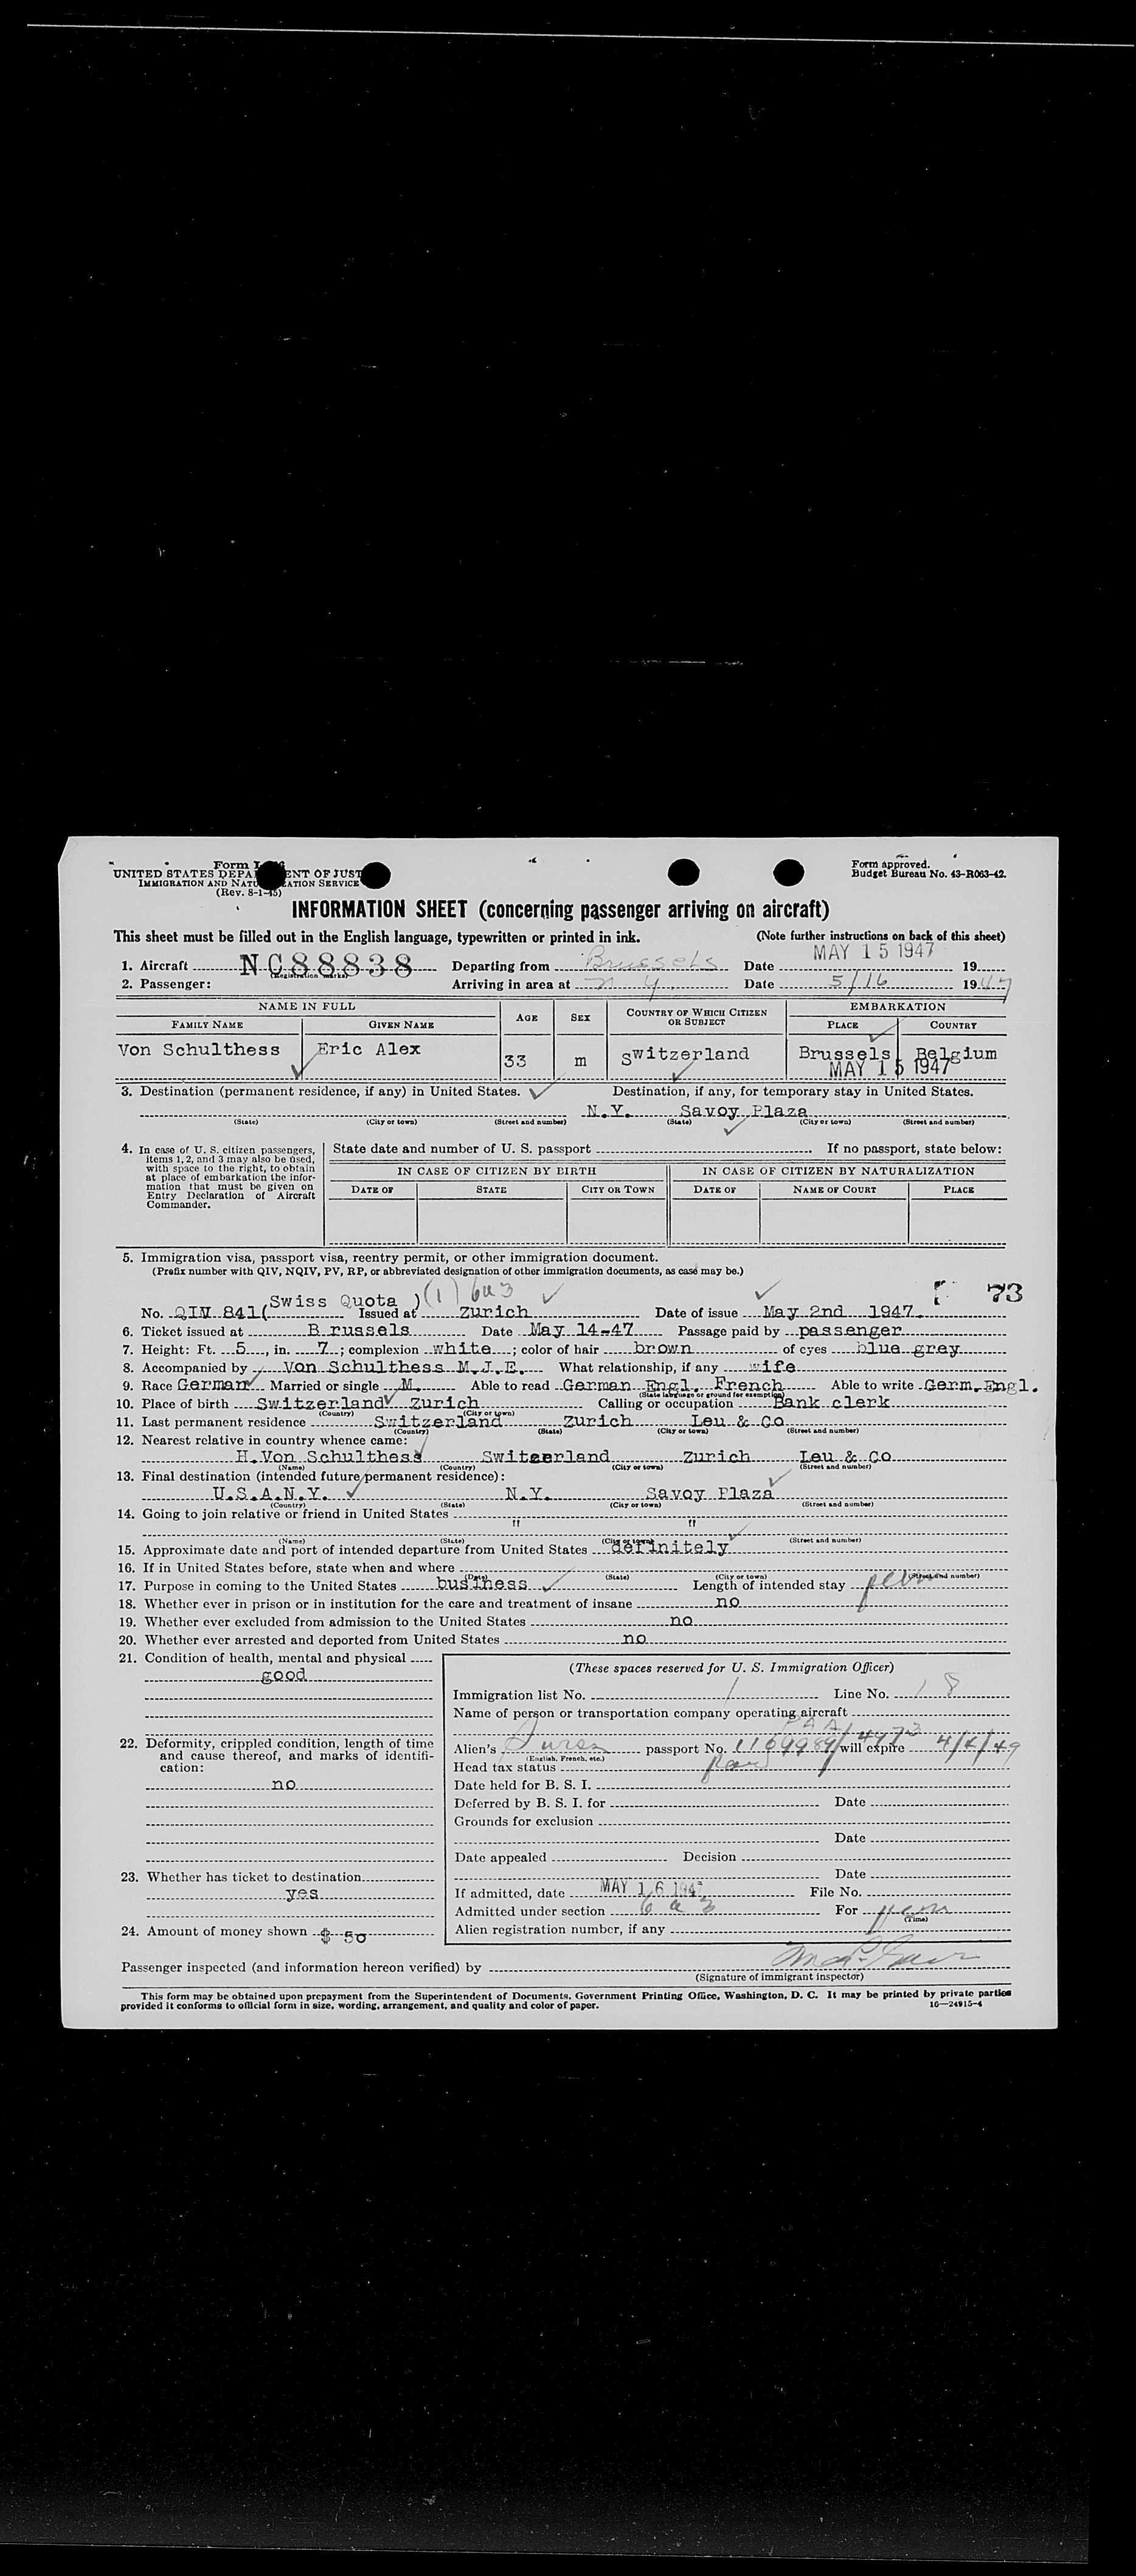 Form I-466
UNITED STATES DEPARTMENT OF JUSTICE
IMMIGRATION AND NATURALIZATION SERVICE
(Rev. 8-1-45)
Form approved.
Budget Bureau No. 43-R063-42.
INFORMATION SHEET (concerning passenger arriving on aircraft)
This sheet must be filled out in the English language, typewritten or printed in ink. (Note further instructions on back of this sheet)
1. Aircraft NC88838 Departing from Brussels Date MAY 15 1947 19
(Registration marks)
2. Passenger: Arriving in area at N Y Date 5/16 1947
NAME IN FULL AGE SEX COUNTRY OF WHICH CITIZEN OR SUBJECT EMBARKATION
FAMILY NAME GIVEN NAME PLACE COUNTRY
Von Schulthess Eric Alex 33 m Switzerland Brussels Belgium
MAY 15 1947
3. Destination (permanent residence, if any) in United States. Destination, if any, for temporary stay in United States.
N.Y. Savoy Plaza
(State) (City or town) (Street and number) (State) (City or town) (Street and number)
4. In case of U. S. citizen passengers, items 1, 2, and 3 may also be used, with space to the right, to obtain at place of embarkation the information that must be given on Entry Declaration of Aircraft Commander.
State date and number of U. S. passport . If no passport, state below:
IN CASE OF CITIZEN BY BIRTH IN CASE OF CITIZEN BY NATURALIZATION
DATE OF STATE CITY OR TOWN DATE OF NAME OF COURT PLACE
5. Immigration visa, passport visa, reentry permit, or other immigration document.
(Prefix number with QIV, NQIV, PV, RP, or abbreviated designation of other immigration documents, as case may be.)
(1) 6a3 73
No. QIV 841(Swiss Quota ) Issued at Zurich Date of issue May 2nd 1947.
6. Ticket issued at B russels Date May 14-47 Passage paid by passenger
7. Height: Ft. 5, in. 7; complexion white; color of hair brown of eyes blue grey
8. Accompanied by Von Schulthess M.J.E. What relationship, if any wife
9. Race German Married or single M. Able to read German Engl. French Able to write Germ.Engl.
(State language or ground for exemption)
10. Place of birth Switzerland Zurich Calling or occupation Bank clerk
(Country) (City or town)
11. Last permanent residence Switzerland Zurich Leu & Co
(Country) (State) (City or town) (Street and number)
12. Nearest relative in country whence came:
H.Von Schulthess Switzerland Zurich Leu & Co
(Name) (Country) (City or town) (Street and number)
13. Final destination (intended future permanent residence):
U.S.A.N.Y. N.Y. Savoy Plaza
(Country) (State) (City or town) (Street and number)
14. Going to join relative or friend in United States
" "
(Name) (State) (City or town) (Street and number)
15. Approximate date and port of intended departure from United States definitely
16. If in United States before, state when and where
(Date) (State) (City or town) (Street and number)
17. Purpose in coming to the United States business Length of intended stay perm
18. Whether ever in prison or in institution for the care and treatment of insane no
19. Whether ever excluded from admission to the United States no
20. Whether ever arrested and deported from United States no
21. Condition of health, mental and physical
good
22. Deformity, crippled condition, length of time and cause thereof, and marks of identification:
no
23. Whether has ticket to destination
yes
24. Amount of money shown $ 50
(These spaces reserved for U. S. Immigration Officer)
Immigration list No. 1 Line No. 18
Name of person or transportation company operating aircraft
P A A
Alien's Swiss passport No. 1109989/4473 will expire 4/4/49
(English, French, etc.)
Head tax status
Date held for B. S. I.
Deferred by B. S. I. for Date
Grounds for exclusion
Date
Date appealed Decision
Date
If admitted, date MAY 16 194 File No.
Admitted under section 6 a 3 For perm
(Time)
Alien registration number, if any
Passenger inspected (and information hereon verified) by
(Signature of immigrant inspector)
This form may be obtained upon prepayment from the Superintendent of Documents, Government Printing Office, Washington, D. C. It may be printed by private parties
provided it conforms to official form in size, wording, arrangement, and quality and color of paper. 16—24915-4